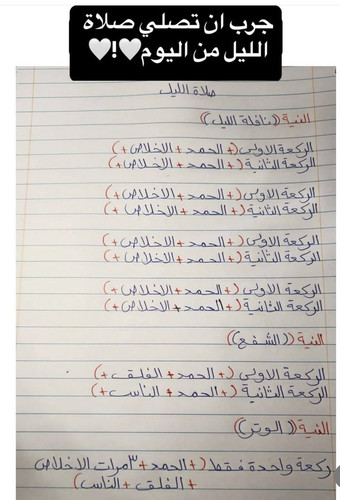 جرب ان تصلي صلاة
الليل من اليوم🤍!🤍
صلاة الليل
النية ((نافلة الليل))
الركعة الاولى (+ الحمد + الاخلاص +)
الركعة الثانية (+ الحمد + الاخلاص +)
الركعة الاولى (+ الحمد + الاخلاص +)
الركعة الثانية (+ الحمد + الاخلاص +)
الركعة الاولى (+ الحمد + الاخلاص +)
الركعة الثانية (+ الحمد + الاخلاص +)
الركعة الاولى (+ الحمد + الاخلاص +)
الركعة الثانية (+ الحمد + الاخلاص +)
النية ((الشفع))
الركعة الاولى (+ الحمد + الفلق +)
الركعة الثانية (+ الحمد + الناس +)
النية ((الوتر))
ركعة واحدة فقط (+ الحمد + ٣ مرات الاخلاص
+ الفلق + الناس)